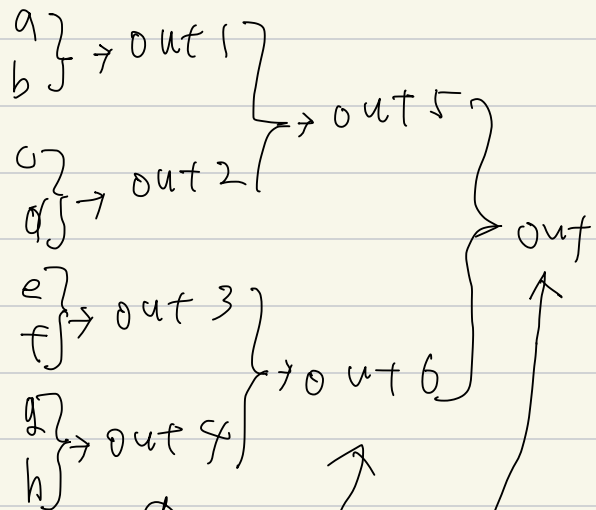 a
b
out 1
c
d
out 2
out 5
e
f
out 3
g
h
out 4
out 6
out